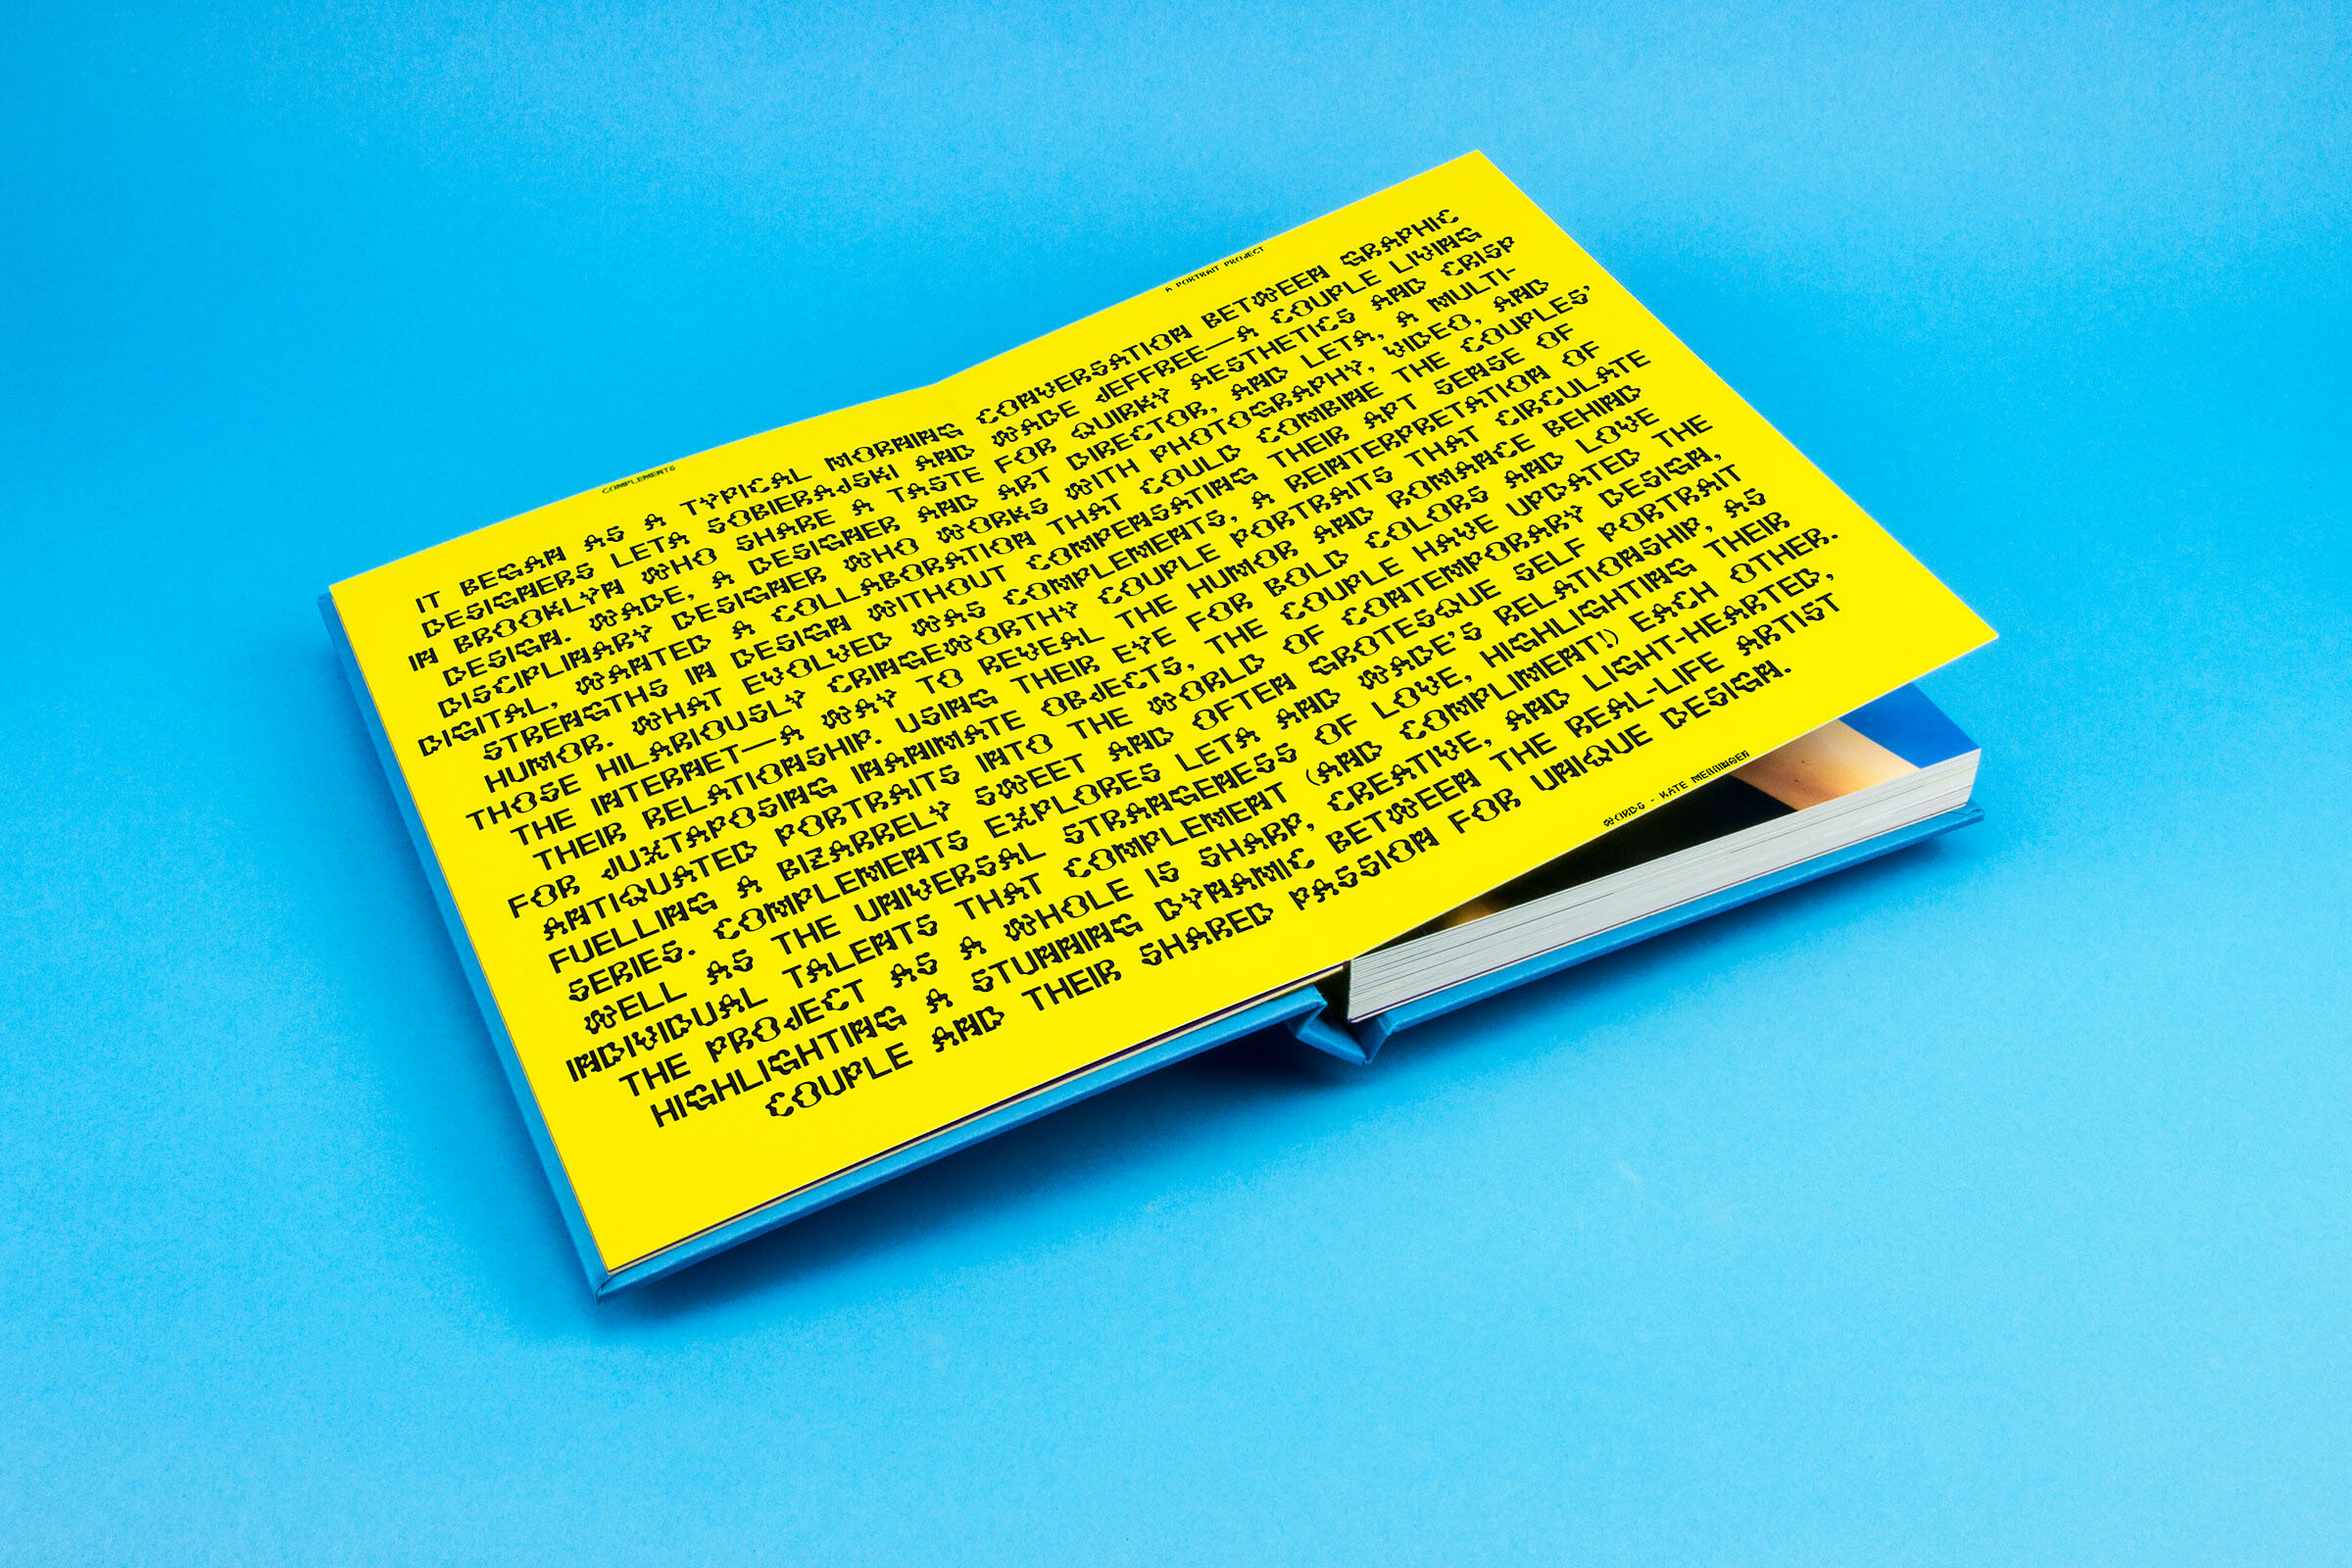 COMPLEMENTS
A PORTRAIT PROJECT
IT BEGAN AS A TYPICAL MORNING CONVERSATION BETWEEN GRAPHIC
DESIGNERS LETA SOBIERAJSKI AND WADE JEFFREE—A COUPLE LIVING
IN BROOKLYN WHO SHARE A TASTE FOR QUIRKY AESTHETICS AND CRISP
DESIGN. WADE, A DESIGNER AND ART DIRECTOR, AND LETA, A MULTI-
DISCIPLINARY DESIGNER WHO WORKS WITH PHOTOGRAPHY, VIDEO, AND
DIGITAL, WANTED A COLLABORATION THAT COULD COMBINE THE COUPLES'
STRENGTHS IN DESIGN WITHOUT COMPENSATING THEIR APT SENSE OF
HUMOR. WHAT EVOLVED WAS COMPLEMENTS, A REINTERPRETATION OF
THOSE HILARIOUSLY CRINGEWORTHY COUPLE PORTRAITS THAT CIRCULATE
THE INTERNET—A WAY TO REVEAL THE HUMOR AND ROMANCE BEHIND
THEIR RELATIONSHIP. USING THEIR EYE FOR BOLD COLORS AND LOVE
FOR JUXTAPOSING INANIMATE OBJECTS, THE COUPLE HAVE UPDATED THE
ANTIQUATED PORTRAITS INTO THE WORLD OF CONTEMPORARY DESIGN,
FUELLING A BIZARRELY SWEET AND OFTEN GROTESQUE SELF PORTRAIT
SERIES. COMPLEMENTS EXPLORES LETA AND WADE'S RELATIONSHIP, AS
WELL AS THE UNIVERSAL STRANGENESS OF LOVE, HIGHLIGHTING THEIR
INDIVIDUAL TALENTS THAT COMPLEMENT (AND COMPLIMENT!) EACH OTHER.
THE PROJECT AS A WHOLE IS SHARP, CREATIVE, AND LIGHT-HEARTED,
HIGHLIGHTING A STUNNING DYNAMIC BETWEEN THE REAL-LIFE ARTIST
COUPLE AND THEIR SHARED PASSION FOR UNIQUE DESIGN.
WORDS - KATE MESSINGER